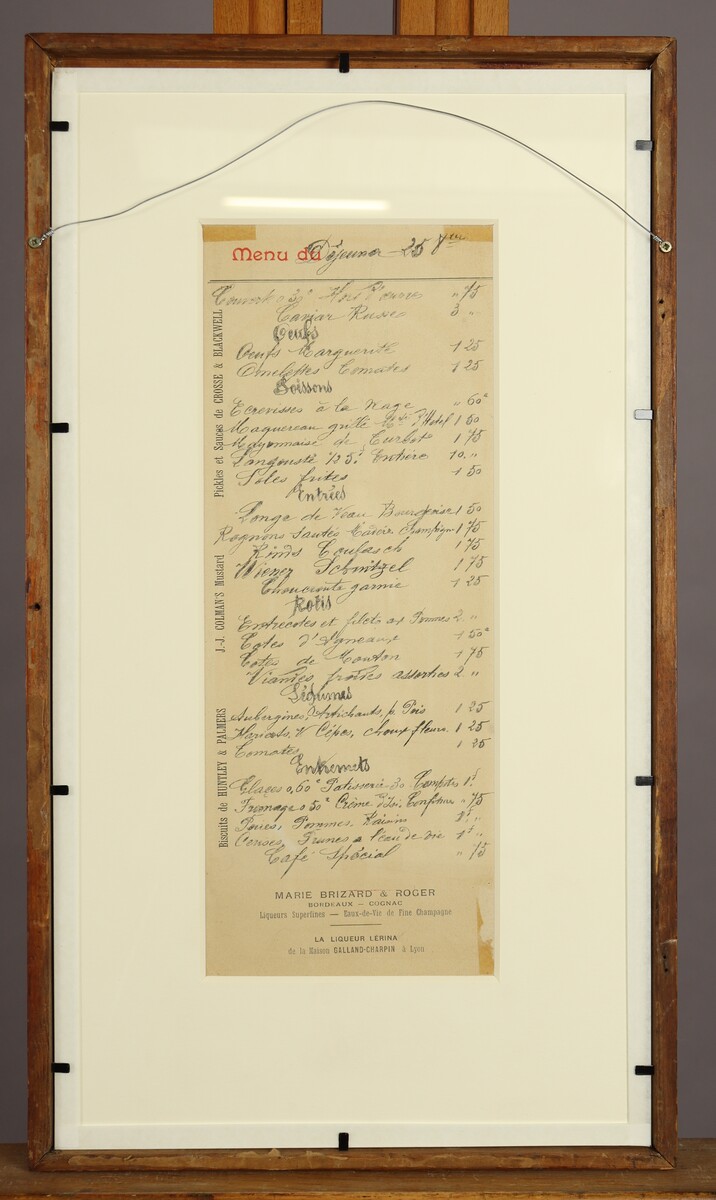 Menu du Déjeuner 25 8bre
Couvert 0 30c Hors d'œuvres " 75
Caviar Russe 3 "
Oeufs
Oeufs Marguerite 1 25
Omelettes Tomates 1 25
Poissons
Ecrevisses à la Nage " 60c
Maquereau grillé Mtre d'Hotel 1 50
Mayonnaise de Turbot 1 75
Langouste 1/2 5f Entière 10 "
Soles frites 1 50
Entrées
Longe de Veau Bourgeoise 1 50
Rognons sautés Madère Champign 1 75
Rinds Goulasch 1 75
Wiener Schnitzel 1 75
Choucroute garnie 1 25
Rotis
Entrecotes et filets aux Pommes 2 "
Cotes d'Agneau 1 50c
Cotes de Mouton 1 75
Viandes froides assorties 2 "
Légumes
Aubergines, Artichauts, p. Pois 1 25
Haricots V. Cèpes, choux fleurs 1 25
Tomates 1 25
Entremets
Glaces 0,60c Patisserie 30 Compotes 1f
Fromage 0 50c Crème d'Is. Confitures " 75
Poires, Pommes, Raisins 1f "
Cerises, Prunes à l'eau de vie 1f "
Café Spécial " 75
Pickles et Sauces de CROSSE & BLACKWELL
J.-J. COLMAN'S Mustard
Biscuits de HUNTLEY & PALMERS
MARIE BRIZARD & ROGER
BORDEAUX — COGNAC
Liqueurs Superfines — Eaux-de-Vie de Fine Champagne
LA LIQUEUR LÉRINA
de la Maison GALLAND-CHARPIN à Lyon